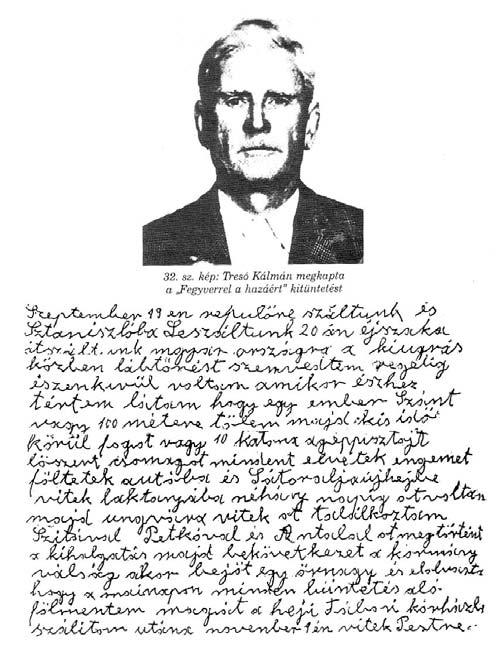 32. sz. kép: Tresó Kálmán megkapta
a „Fegyverrel a hazáért" kitüntetést
Szeptember 19 en repulőre száltunk és
Sztaniszlóba Leszáltunk 20 án éjszaka
átszált unk magyar országra a kiugrás
közben lábtörést szenvedtem végelig
észenkivül voltam amikor észhez
tértem látam hogy egy ember Szánt
vagy 100 métere tölem majd kis idö
körül fogot vagy 10 katona agéppusztojt
löszert csomagot mindent elvetek engemet
föltetek autoba és Sátoraljaújhejbe
vitek laktanyába néhány napig ot voltam
majd ungvára vitek ot talalkoztam
Szitával Petkóval és Antalal ot megtörtént
a kihalgatás majd bekövetkezet a kormány
válság akor bejöt egy örnagy és elolvasta
hogy a mainapon minden büntetés aló
fölmentem magát a heji Tábori kórházba
szálitom utána november 1 én vitek Pestre.